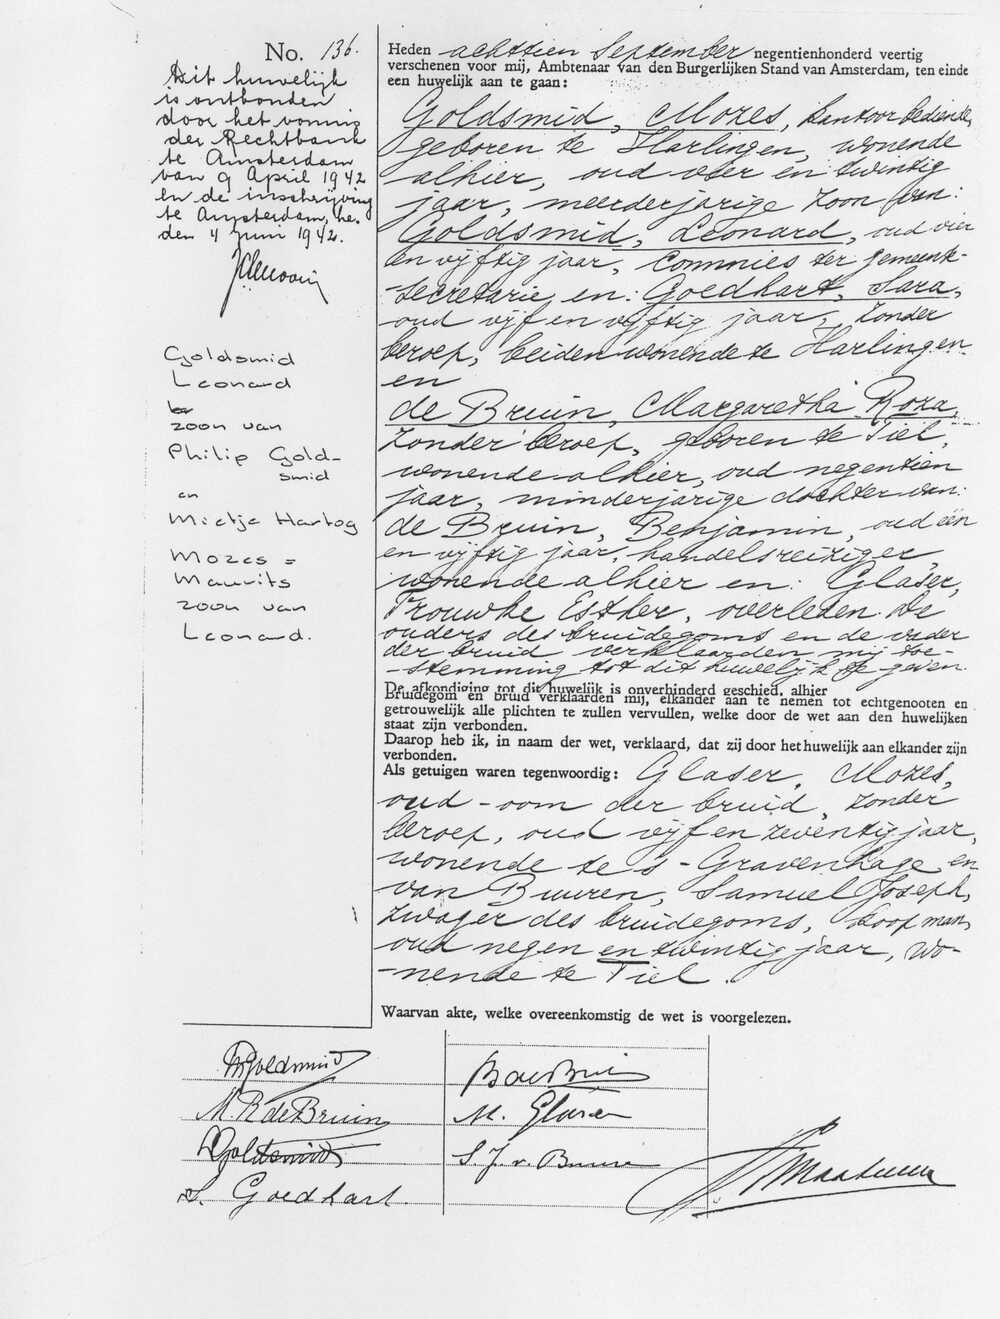 No. 136.
Dit huwelijk
is ontbonden
door het vonnis
der Rechtbank
te Amsterdam
van 9 April 1942
en de inschrijving
te Amsterdam, he.
den 4 Juni 1942.
Goldsmid
Leonard
zoon van
Philip Gold-
smid
en
Mietje Hartog
Mozes =
Maurits
zoon van
Leonard.
Heden achttien September negentienhonderd veertig
verschenen voor mij, Ambtenaar van den Burgerlijken Stand van Amsterdam, ten einde
een huwelijk aan te gaan:
Goldsmid, Mozes, kantoorbediende,
geboren te Harlingen, wonende
alhier, oud vier en twintig
jaar, meerderjarige zoon van:
Goldsmid, Leonard, oud vier
en vijftig jaar, commies ter gemeente-
secretarie, en: Goedhart, Sara,
oud vijf en vijftig jaar, zonder
beroep, beiden wonende te Harlingen
en
de Bruin, Margaretha Roza,
zonder beroep, geboren te Tiel,
wonende alhier, oud negentien
jaar, minderjarige dochter van:
de Bruin, Benjamin, oud een
en vijftig jaar, handelsreiziger,
wonende alhier en: Glaser,
Vrouwke Esther, overleden. De
ouders des bruidegoms en de vader
der bruid verklaarden mij toe-
-stemming tot dit huwelijk te geven.
De afkondiging tot dit huwelijk is onverhinderd geschied, alhier
Bruidegom en bruid verklaarden mij, elkander aan te nemen tot echtgenooten en
getrouwelijk alle plichten te zullen vervullen, welke door de wet aan den huwelijken
staat zijn verbonden.
Daarop heb ik, in naam der wet, verklaard, dat zij door het huwelijk aan elkander zijn
verbonden.
Als getuigen waren tegenwoordig: Glaser, Mozes,
oud-oom der bruid, zonder
beroep, oud vijf en zeventig jaar,
wonende te 's-Gravenhage en
van Buuren, Samuel Joseph,
zwager des bruidegoms, koopman,
oud negen en twintig jaar, wo-
-nende te Tiel.
Waarvan akte, welke overeenkomstig de wet is voorgelezen.
M Goldsmid
M. R de Bruin
L Goldsmid
S. Goedhart.
B de Bruin
M. Glaser
S J. v. Buuren